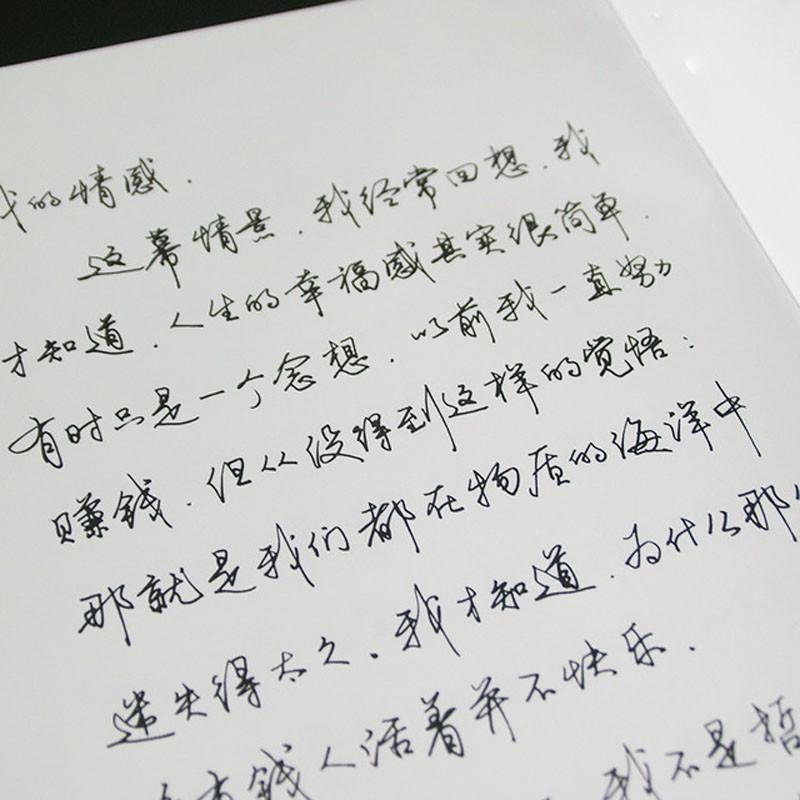 我的情感.
这幕情景.我经常回想.我
才知道.人生的幸福感其实很简单.
有时只是一个念想.以前我一直努力
赚钱.但从没得到这样的觉悟:
那就是我们都在物质的海洋中
迷失得太久.我才知道.为什么那
有钱人活着并不快乐.
我不是哲